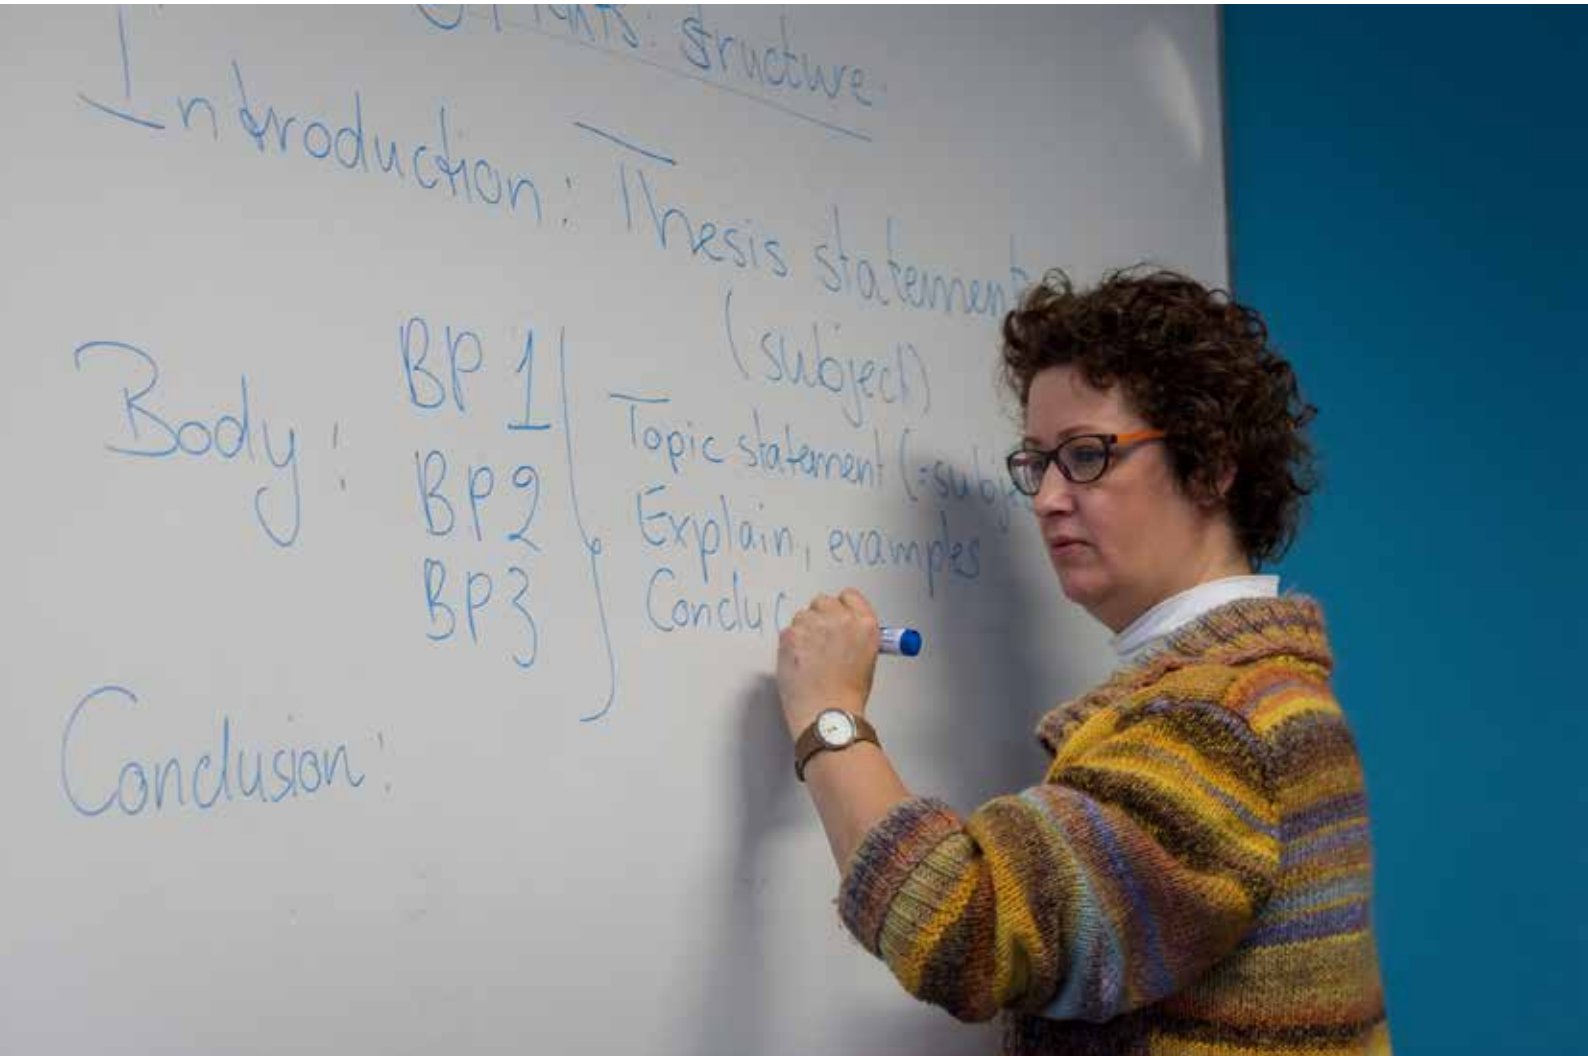 structure.
Introduction: Thesis statement
(subject)
Body: BP 1
BP2
BP3
Topic statement
Explain, examples
Conclusion: